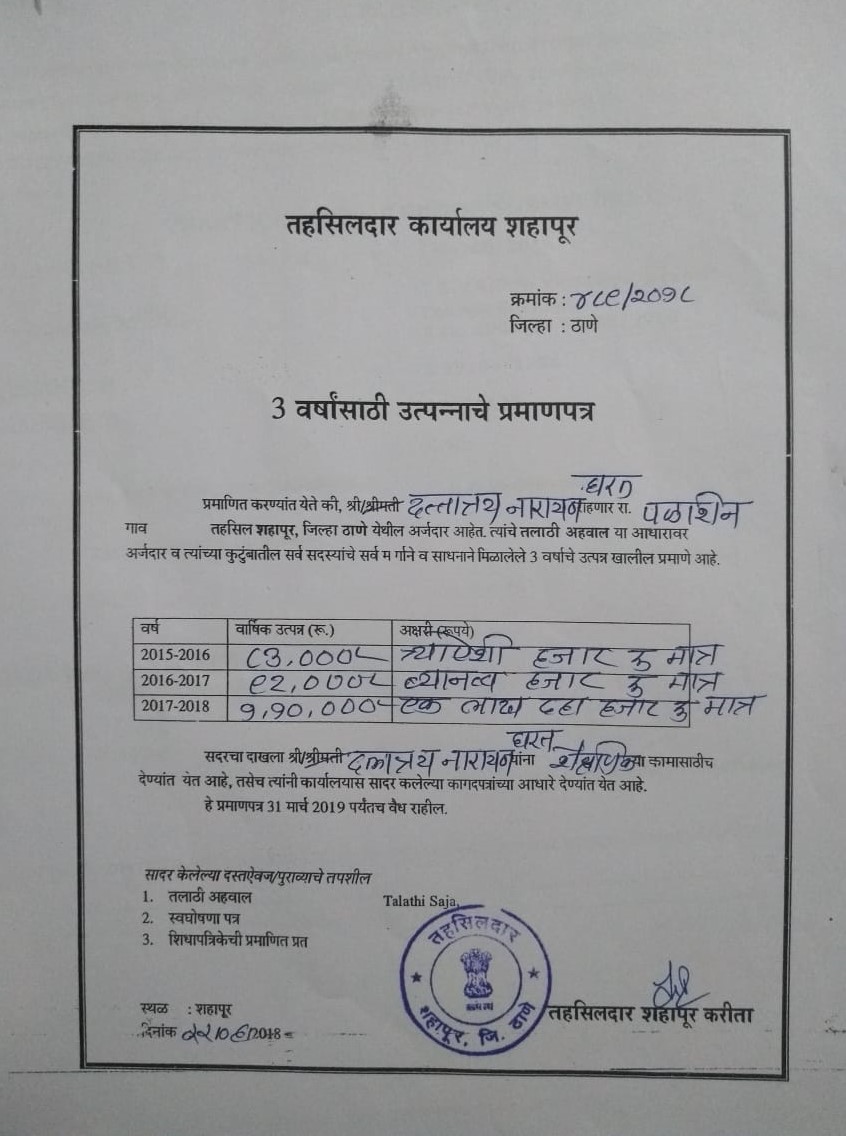 तहसिलदार कार्यालय शहापूर
क्रमांक : ४८९/२०१८
जिल्हा : ठाणे
3 वर्षांसाठी उत्पन्नाचे प्रमाणपत्र
घरत
प्रमाणित करण्यांत येते की, श्री/श्रीमती दत्तात्रय नारायण राहणार रा. पळाशिन
गाव तहसिल शहापूर, जिल्हा ठाणे येथील अर्जदार आहेत. त्यांचे तलाठी अहवाल या आधारावर
अर्जदार व त्यांच्या कुटुंबातील सर्व सदस्यांचे सर्व म र्गाने व साधनाने मिळालेले 3 वर्षाचे उत्पन्न खालील प्रमाणे आहे.
वर्ष वार्षिक उत्पन्न (रू.) अक्षरी (रूपये)
2015-2016 ८३,०००/- त्र्याऐशी हजार रु मात्र
2016-2017 ९२,०००/- ब्यानव्व हजार रु मात्र
2017-2018 १,१०,०००/- एक लाख दहा हजार रु मात्र
घरत
सदरचा दाखला श्री/श्रीमती दत्तात्रय नारायण यांना शैक्षणिक या कामासाठीच
देण्यांत येत आहे, तसेच त्यांनी कार्यालयास सादर कलेल्या कागदपत्रांच्या आधारे देण्यांत येत आहे.
हे प्रमाणपत्र 31 मार्च 2019 पर्यंतच वैध राहील.
सादर केलेल्या दस्तऐवज/पुराव्याचे तपशील
1. तलाठी अहवाल Talathi Saja,
2. स्वघोषणा पत्र
3. शिधापत्रिकेची प्रमाणित प्रत
तहसिलदार
शहापूर, जि. ठाणे
स्थळ : शहापूर
तहसिलदार शहापूर करीता
दिनांक /2018